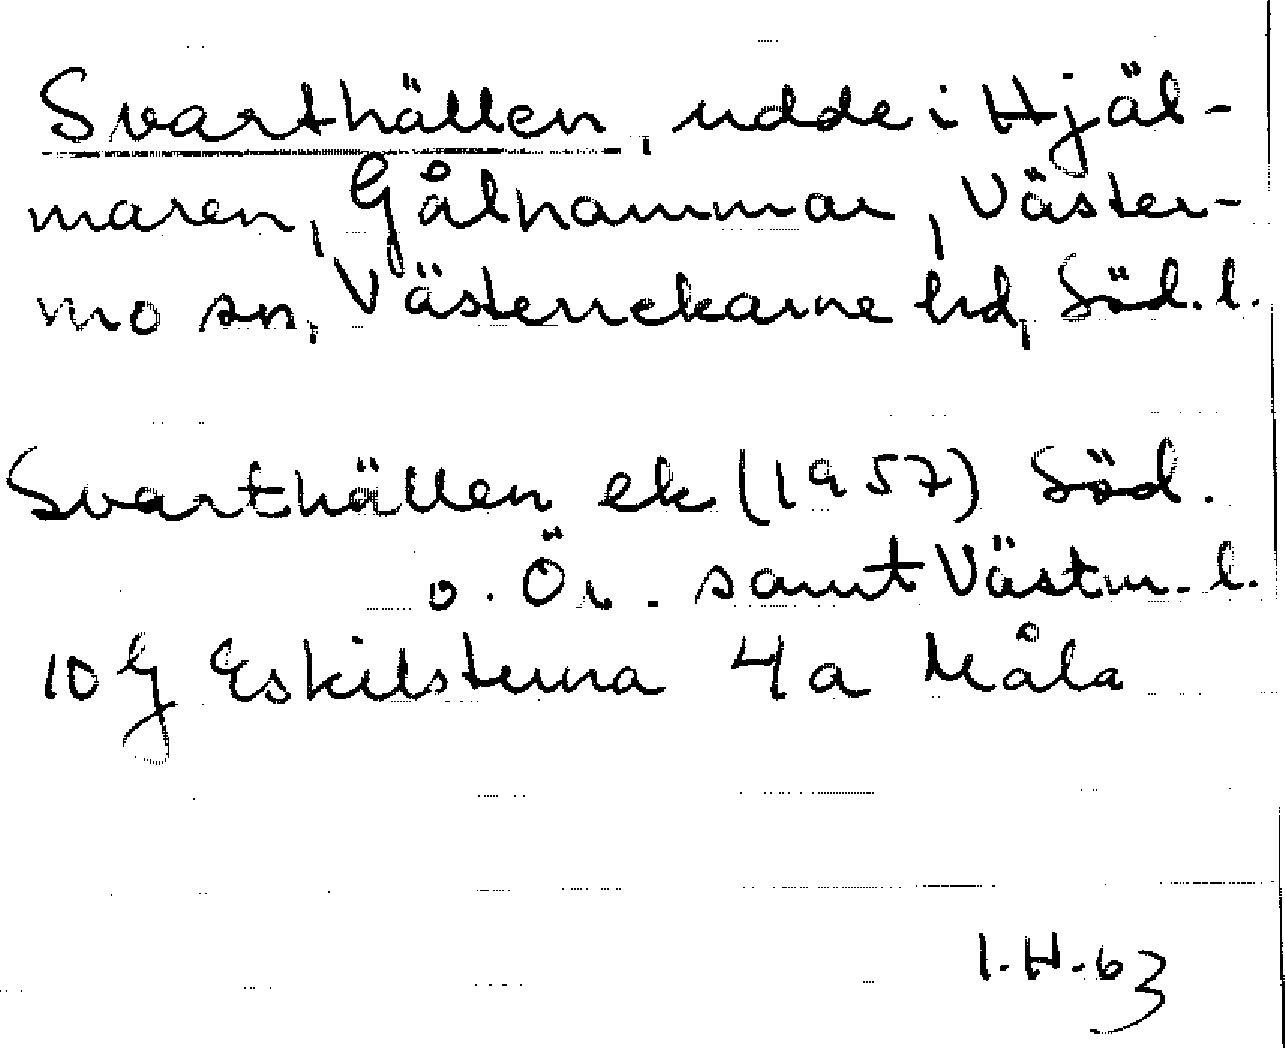 Svarthällen, udde i Hjäl-
maren, Gålhammar, Väster-
mo sn, Västerrekarne hd, Söd. l.
Svarthällen ek (1957) Söd.
o. Ör. samt Västm. l.
10 G Eskilstuna 4a Måla
I.H.63